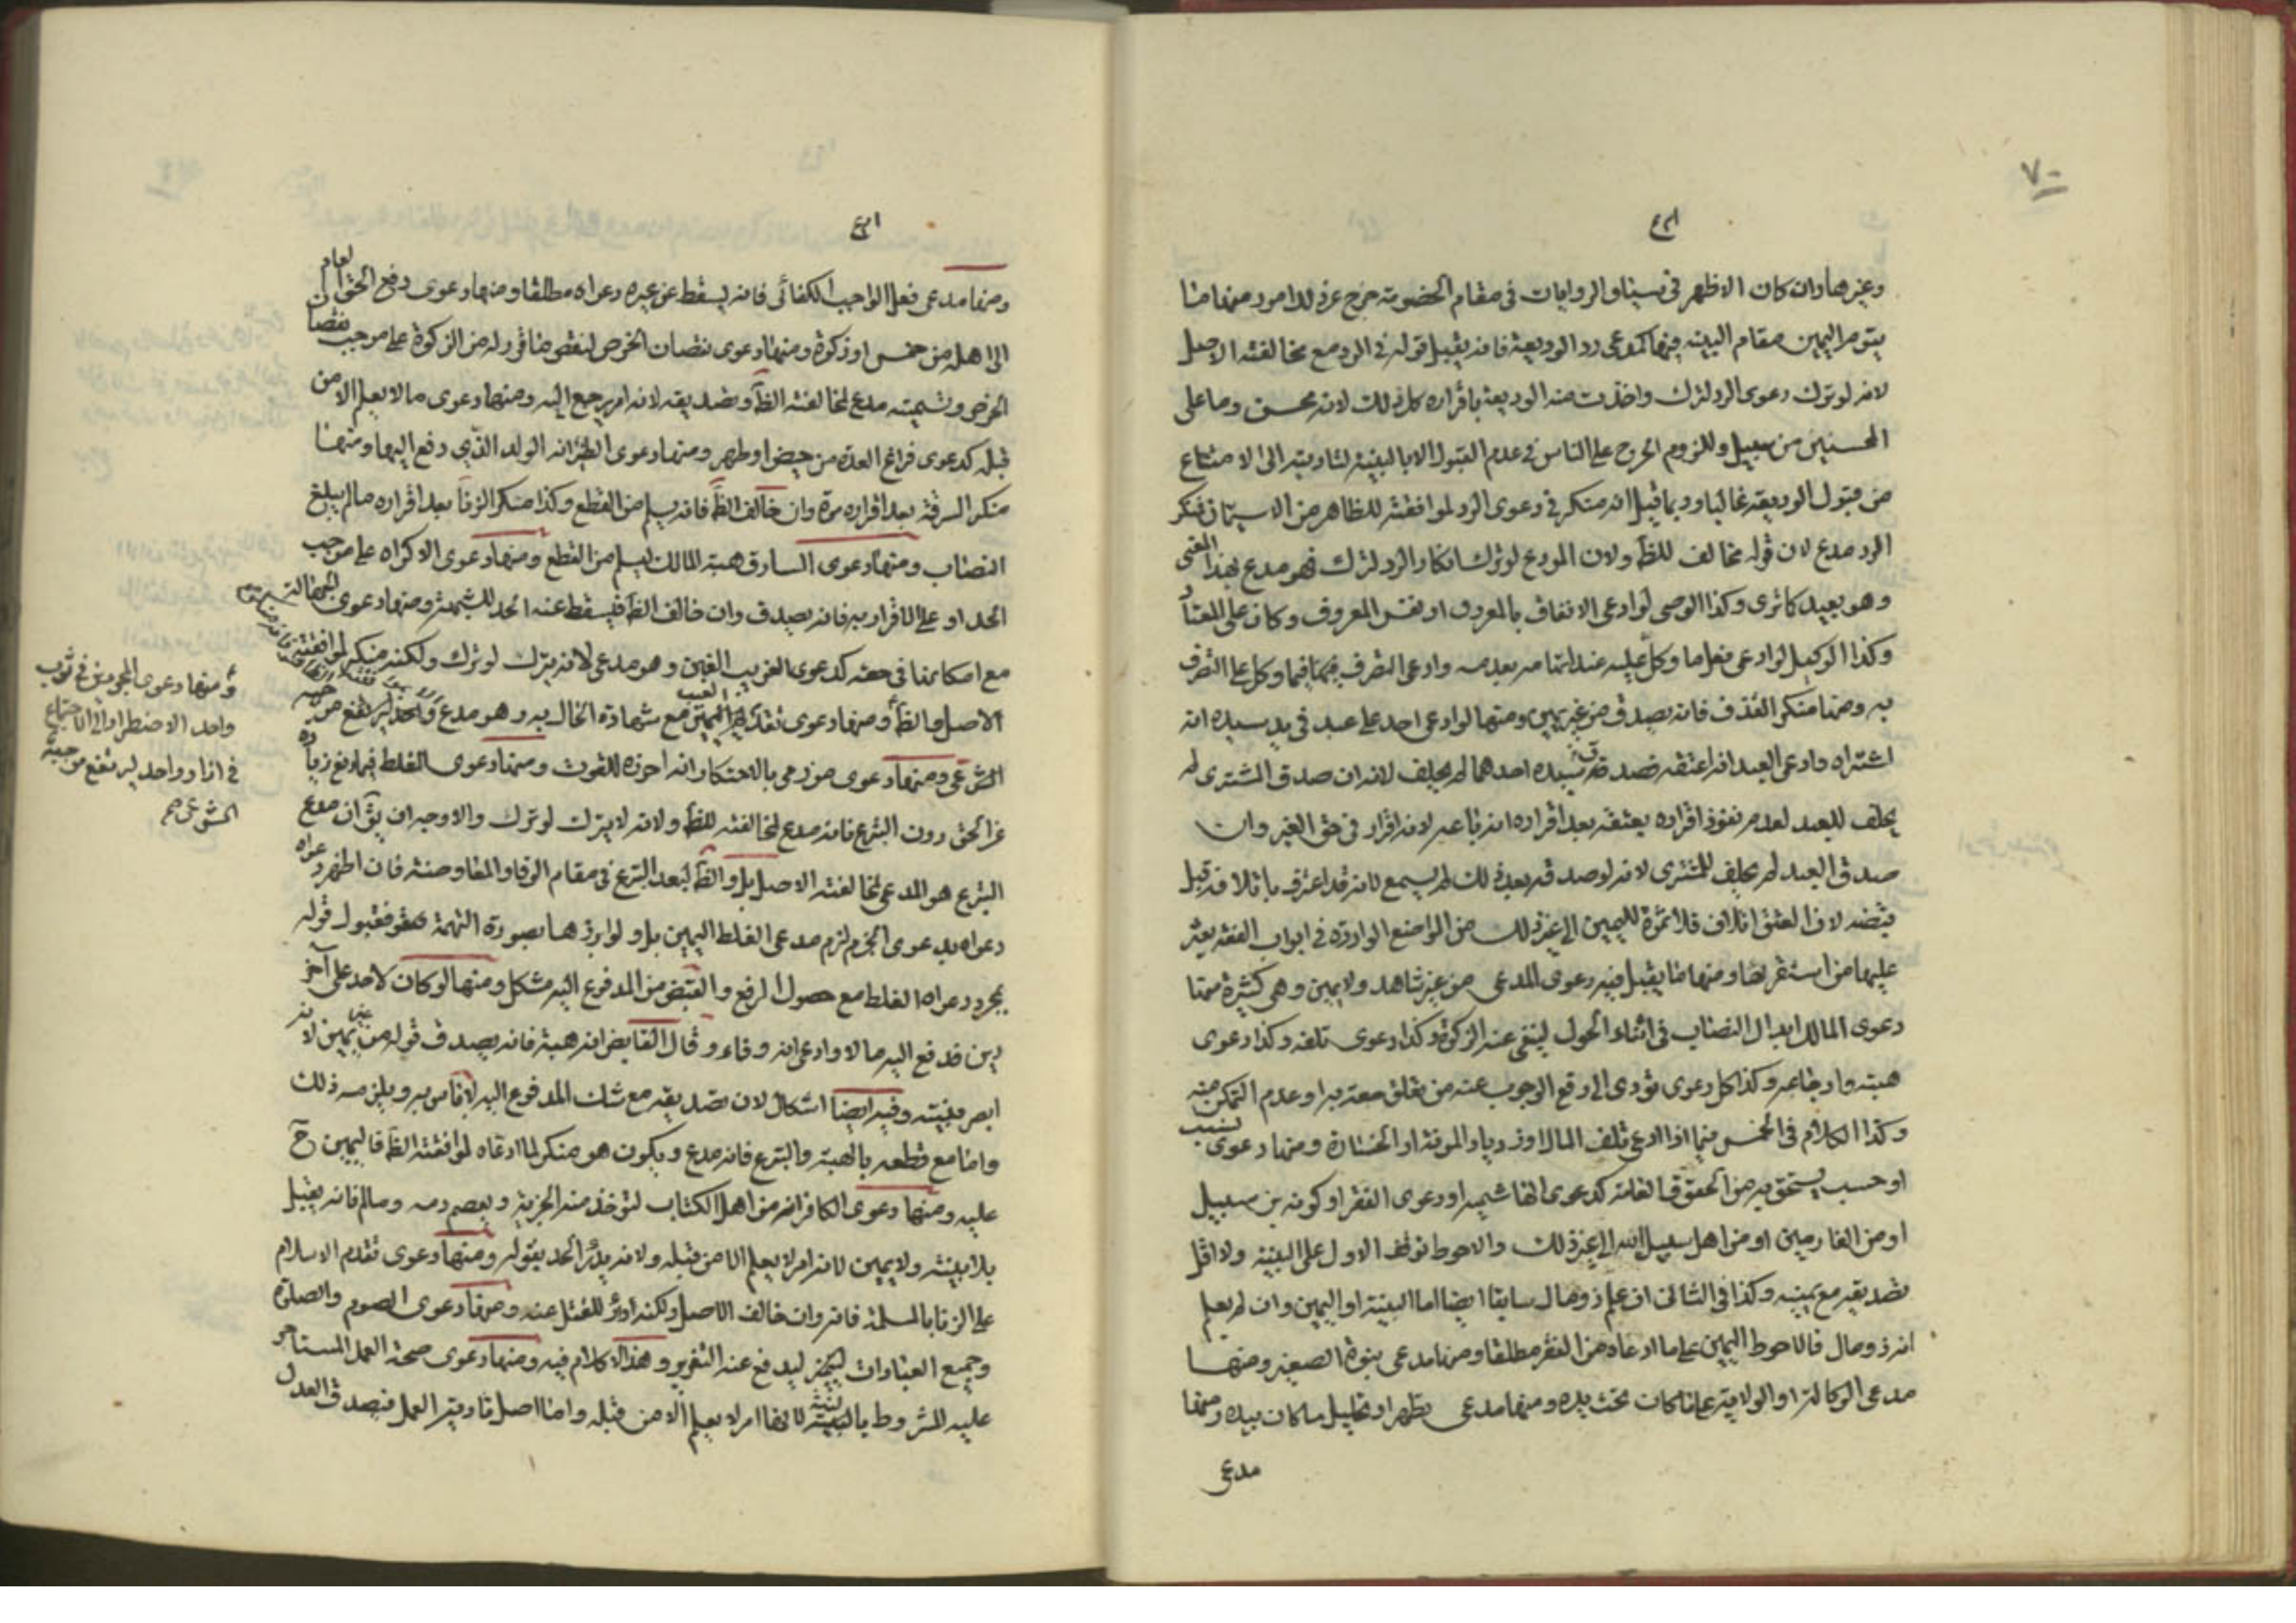 ٧٠
وغيرهما وان كان الاظهر في سياق الروايات في مقام الخصومة خرج عن ذلك امور منها ما
يقوم اليمين مقام البينه فمنها كمدعى رد الوديعة فانه يقبل قوله في الرد مع مخالفته الاصل
لانه لو ترك دعوى الرد لترك واخذت منه الوديعة بأقراره كل ذلك لانه محسن وما على
المحسنين من سبيل وللزوم الحرج على الناس في عدم القبول الا بالبينة لتأديته الى الامتناع
من قبول الوديعة غالبا وربما قيل انه منكر في دعوى الرد لموافقته للظاهر من الاستيمان فمنكر
الرد مدع لان قوله مخالف للظ ولان المودع لو ترك انكار الرد لترك فهو مدع بهذا المعنى
وهو بعيد كما ترى وكذا الوصي لو ادعى الانفاق بالمعروف او نفس المعروف وكان على المعتاد
وكذا الوكيل لو ادعى فعل ما وكل عليه عند اتهامه بعدمه وادعى التصرف فيما وكل على التصرف
به ومنها منكر القذف فانه يصدق من غير يمين ومنها لو ادعى احد على عبد في يد سيده انه
اشتراه وادعى العبد انه اعتقه فصدق سيده احدهما لم يحلف لانه ان صدق المشتري لم
يحلف للعبد لعدم نفوذ اقراره بعتقه بعد اقراره انه باعه لانه اقرار في حق الغير وان
صدق العبد لم يحلف للمشتري لانه لو صدقه بعد ذلك لم يسمع لانه قد اعترف باتلافه قبل
قبضه لان العتق اتلاف فلا ثمرة لليمين الى غير ذلك من المواضع الواردة في ابواب الفقه يعثر
عليها من استقرئها ومنها ما يقبل فيه دعوى المدعى من غير شاهد ولا يمين وهي كثيرة منها
دعوى المالك ابدال النصاب في اثناء الحول لينفي عنه الزكوة وكذا دعوى تلفه وكذا دعوى
هبته وارجاعه وكذا كل دعوى تؤدى الى رفع الوجوب عنه من تعلق حقه به او عدم التمكن منه
وكذا الكلام في الخمس فيما اذا ادعى تلف المال او زيادة المونة او الخسارة ومنها دعوى نسب
او حسب يستحق به من الحقوق العامة كدعوى الهاشمية او دعوى الفقر او كونه بن سبيل
او من الغارمين او من اهل سبيل الله الى غير ذلك والاحوط توقف الاول على البينة ولا اقل
تصديقه مع يمينه وكذا في الثاني ان علم ذو مال سابقا ايضا اما البينة او اليمين وان لم يعلم
انه ذو مال فالاحوط اليمين على ما ادعاه من الفقر مطلقا ومنها مدعى بنوة الصغير ومنها
مدعى الوكالة او الولاية على ما كان تحت يده ومنها مدعى تطهير او تحليل ما كان بيده ومنها
مدعى
ومنها مدعى فعل الواجب الكفائى فانه يسقط عن غيره دعواه مطلقا ومنها دعوى دفع الحق العام
الى اهله من خمس او زكوة ومنها دعوى نقصان الخرص لنقص ما قرر له من الزكوة على موجب نقصان
الخرص وتسميته مدع لمخالفته الظ وتصديقه لانه امر يرجع اليه ومنها دعوى ما لا يعلم الا من
قبله كدعوى فراغ العدة من حيض او طهر ومنها دعوى الظئر انه الولد الذي دفع اليها ومنها
منكر السرقة بعد اقراره مرة وان خالف الظ فانه يسلم من القطع وكذا منكر الزنا بعد اقراره ما لم يبلغ
النصاب ومنها دعوى السارق هبة المالك ليسلم من القطع ومنها دعوى الاكراه على موجب
الحد او على الاقرار به فانه يصدق وان خالف الظ فيسقط عنه الحد للشبهة ومنها دعوى الجهالة
مع امكانها في حقه كدعوى الغريب الغبن وهو مدعى لانه يترك لو ترك ولكنه منكر لموافقته
الاصل والظ ومنها دعوى تقدم العيب مع شهادة الحال به وهو مدع
الشرعي ومنها دعوى من رمى بالاحتكار انه احرزه للقوت ومنها دعوى الغلط فيما دفع زيادة
عن الحق دون التبرع فانه مدع لمخالفته للظ ولانه لا يترك لو ترك والاوجه ان يق ان مدع
التبرع هو المدعى لمخالفته الاصل بل والظ لبعد التبرع في مقام الوفا والمعاوضة فان اظهر دعواه
دعواه بدعوى الجزم لزم مدعى الغلط اليمين بل ولو ابرزها بصورة التهمة فقبول قوله
بمجرد دعواه الغلط مع حصول الدفع والقبض من المدفوع اليه مشكل ومنها لو كان لاحد على آخر
دين فدفع اليه مالا وادعى انه وفاء وقال القابض انه هبة فانه يصدق قوله من غير يمين لانه
ابصر بنيته وفيه ايضا اشكال لان تصديقه مع شك المدفوع اليه لا باس به ويلزمه ذلك
واما مع قطعه بالهبة والتبرع فانه مدع ويكون هو منكر لما ادعاه لموافقته الظ فاليمين ح
عليه ومنها دعوى الكافر انه من اهل الكتاب لتوخذ منه الجزية ويعصم دمه وماله فانه يقبل
بلا بينة ولا يمين لانه امر لا يعلم الا من قبله ولانه يدرأ الحد بقوله ومنها دعوى تقدم الاسلام
على الزنا بالمسلمة فانه وان خالف الاصل ولكنه ادرأ للقتل عنه ومنها دعوى الصوم والصلوة
وجميع العبادات ليدفع عنه التعزير وهذا لا كلام فيه ومنها دعوى صحة العمل المستاجر
عليه المشروط بالنية لانها امر لا يعلم الا من قبله واما اصل تادية العمل فتصدق العدل
ومنها دعوى المجردين في ثوب
واحد الاضطرار الى الاجتماع
في ازار واحد ليرتفع موجبه
الشرعي صح